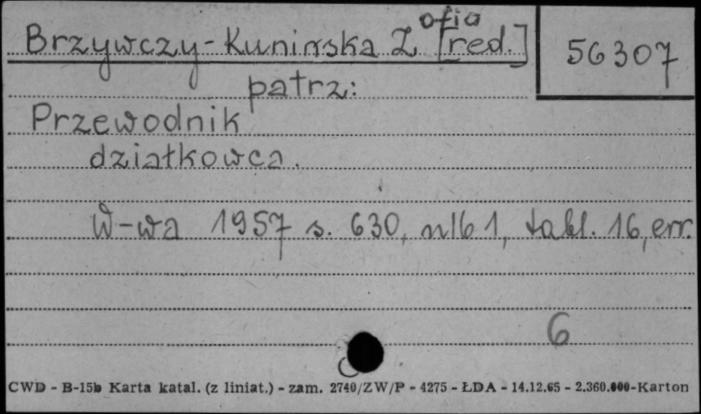 Brzywczy-Kunińska Zofia [red.]
56307
patrz:
Przewodnik
działkowca.
W-wa 1957 s. 630, nlb 1, tabl. 16, err.
6
CWD - B-15b Karta katal. (z liniat.) - zam. 2740/ZW/P - 4275 - ŁDA - 14.12.65 - 2.360.000-Karton